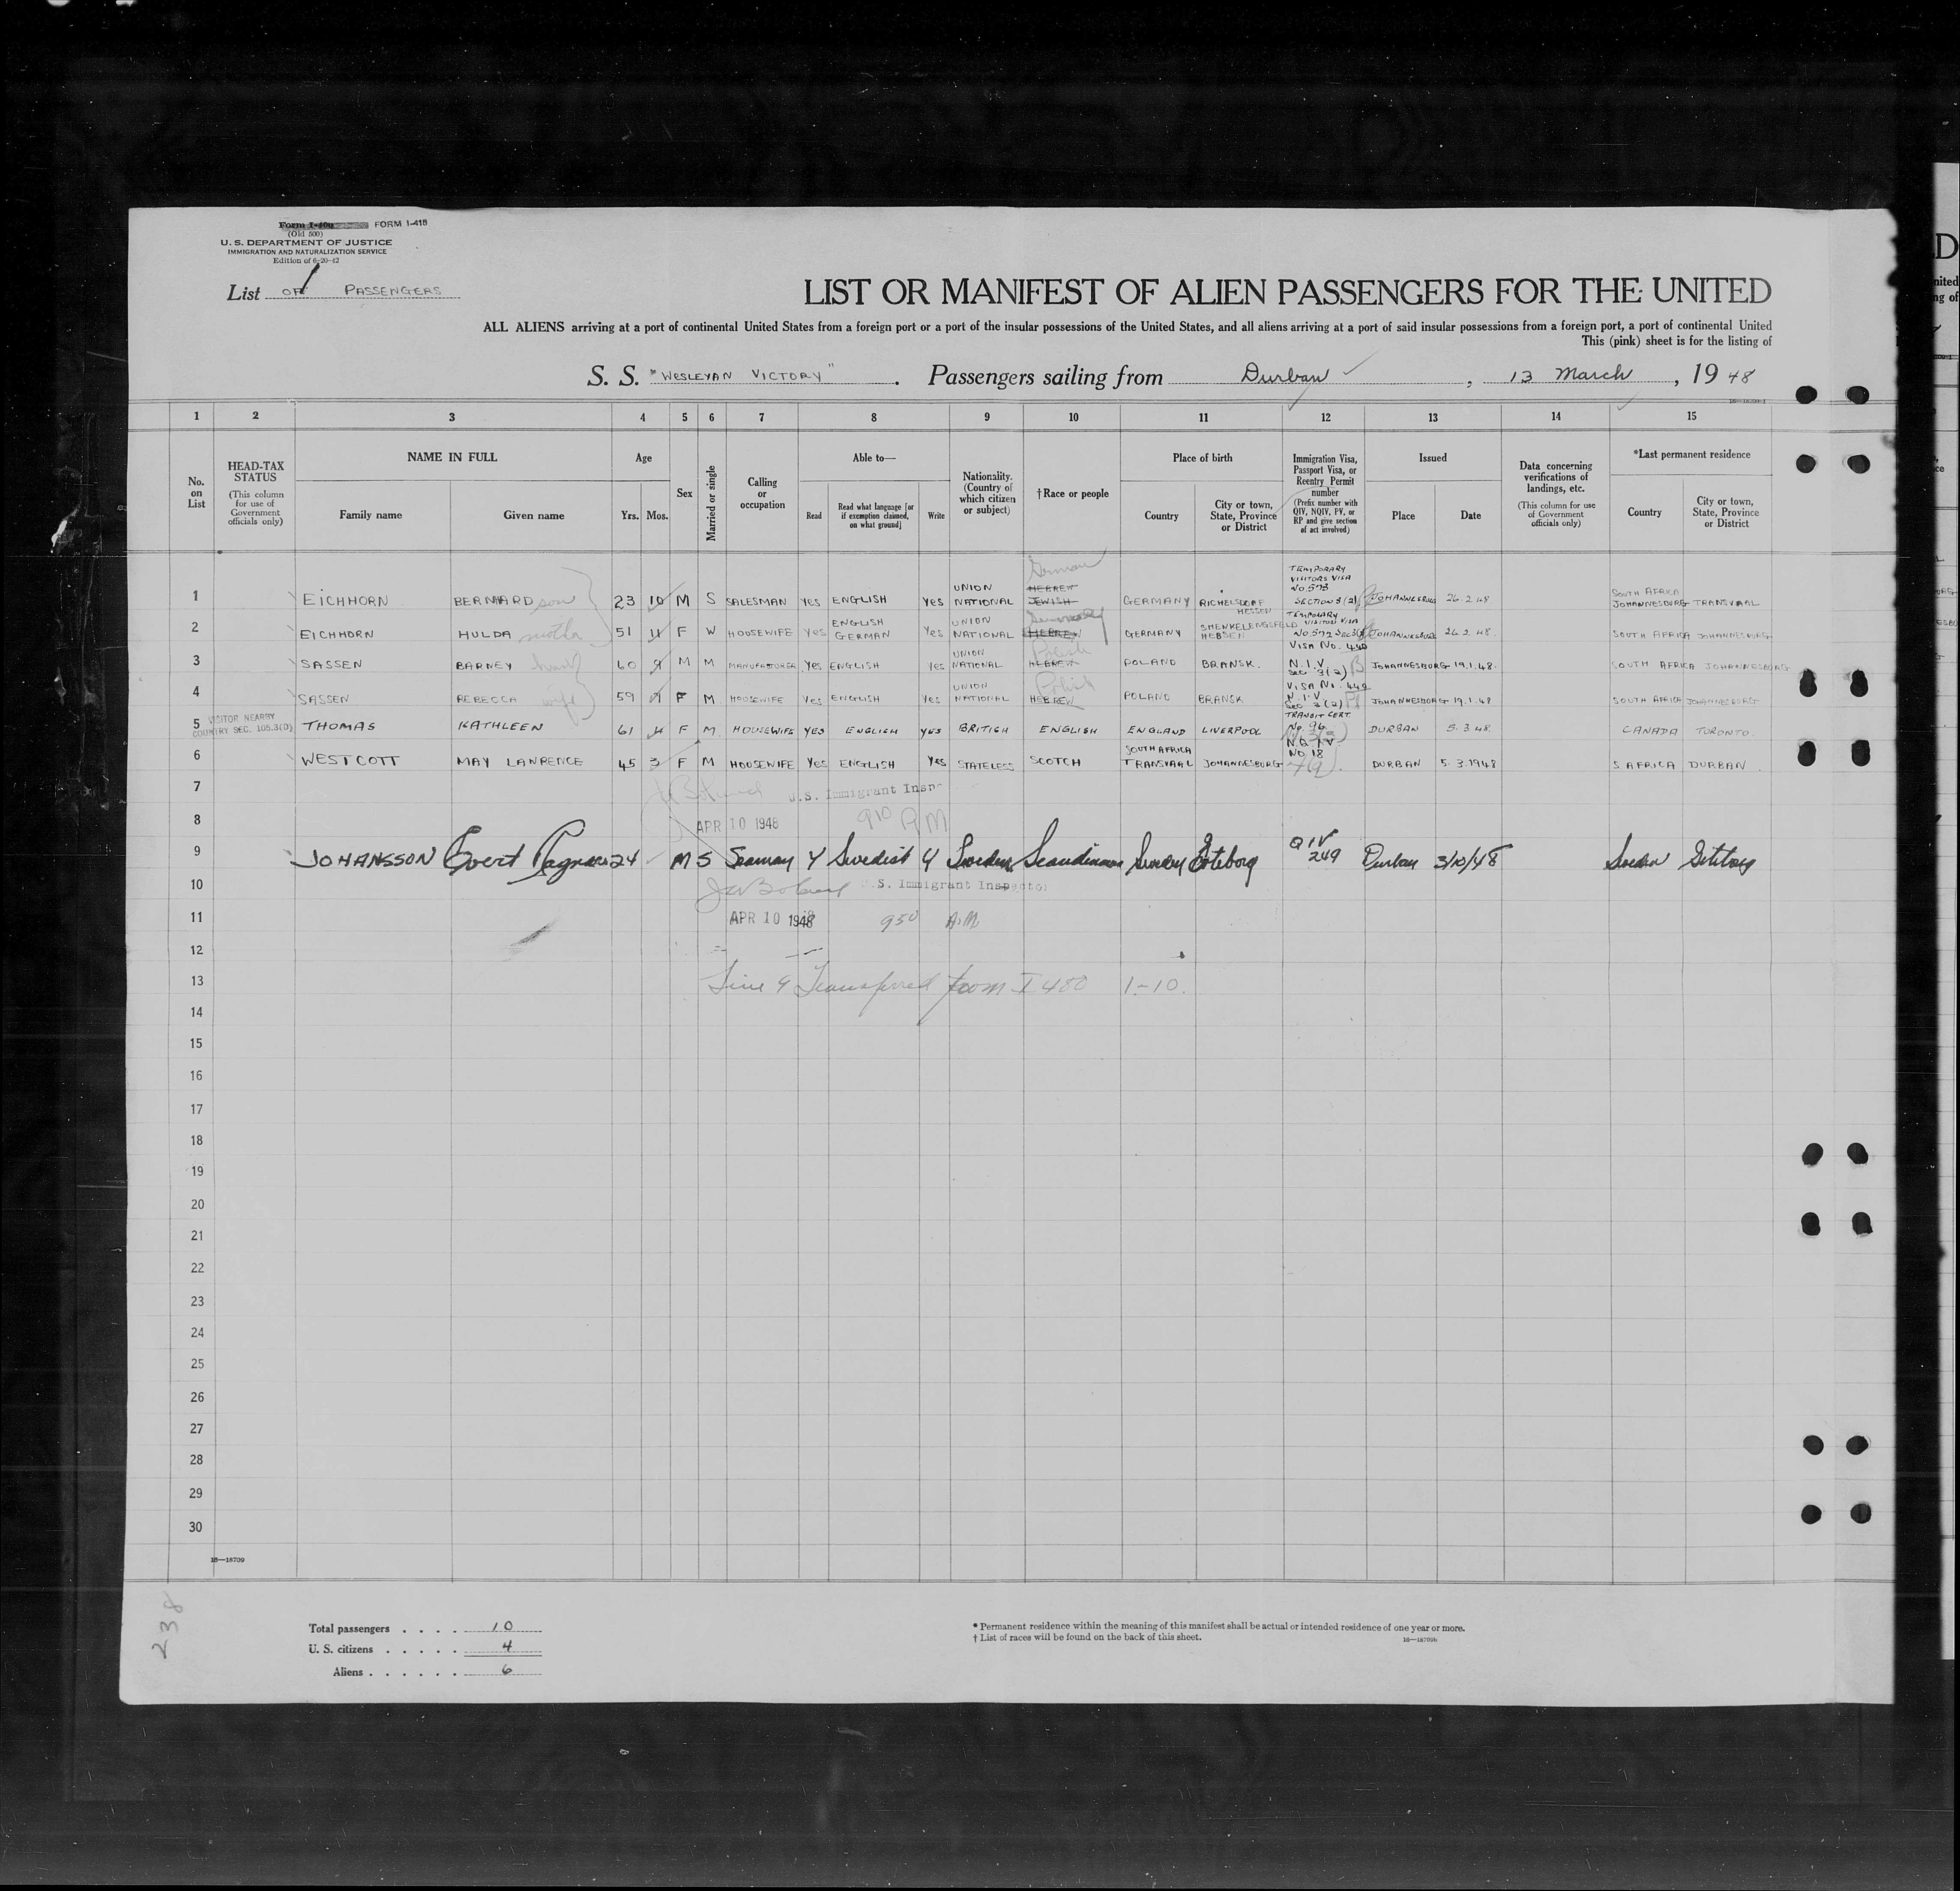 Form I-400 FORM I-418
(Old 500)
U. S. DEPARTMENT OF JUSTICE
IMMIGRATION AND NATURALIZATION SERVICE
Edition of 6-20-42
List 1 OF PASSENGERS
LIST OR MANIFEST OF ALIEN PASSENGERS FOR THE UNITED
ALL ALIENS arriving at a port of continental United States from a foreign port or a port of the insular possessions of the United States, and all aliens arriving at a port of said insular possessions from a foreign port, a port of continental United
This (pink) sheet is for the listing of
S. S. "WESLEYAN VICTORY" . Passengers sailing from Durban , 13 March , 19 48
1 2 3 4 5 6 7 8 9 10 11 12 13 14 15
No. on List
HEAD-TAX STATUS (This column for use of Government officials only)
NAME IN FULL Family name Given name
Age Yrs. Mos.
Sex
Married or single
Calling or occupation
Able to— Read Read what language [or if exemption claimed, on what ground] Write
Nationality. (Country of which citizen or subject)
†Race or people
Place of birth Country City or town, State, Province or District
Immigration Visa, Passport Visa, or Reentry Permit number (Prefix number with QIV, NQIV, PV, or RP and give section of act involved)
Issued Place Date
Data concerning verifications of landings, etc. (This column for use of Government officials only)
*Last permanent residence Country City or town, State, Province or District
1 EICHHORN BERNHARD son 23 10 M S SALESMAN Yes ENGLISH Yes UNION NATIONAL HEBREW JEWISH German GERMANY RICHELSDORF HESSEN TEMPORARY VISITORS VISA No.573 SECTION 3(2) JOHANNESBURG 26.2.48 SOUTH AFRICA JOHANNESBURG TRANSVAAL
2 EICHHORN HULDA mother 51 11 F W HOUSEWIFE Yes ENGLISH GERMAN Yes UNION NATIONAL HEBREW GERMANY SHENKELENGSFELD HESSEN TEMPORARY VISITORS VISA No.572 Sec 3(2) JOHANNESBURG 26.2.48. SOUTH AFRICA JOHANNESBURG
3 SASSEN BARNEY 60 9 M M MANUFACTURER Yes ENGLISH Yes UNION NATIONAL HEBREW Polish POLAND BRANSK. VISA No. 440 N.I.V. Sec 3(2) JOHANNESBURG 19.1.48. SOUTH AFRICA JOHANNESBURG
4 SASSEN REBECCA wife 59 9 F M. HOUSEWIFE Yes ENGLISH Yes UNION NATIONAL HEBREW Polish POLAND BRANSK VISA No. 442 N.I.V. Sec 3(2) JOHANNESBURG 19.1.48 SOUTH AFRICA JOHANNESBURG
5 VISITOR NEARBY COUNTRY SEC. 105.3(D) THOMAS KATHLEEN 61 4 F M. HOUSEWIFE YES ENGLISH YES BRITISH ENGLISH ENGLAND LIVERPOOL TRANSIT CERT. No. 96 DURBAN 5.3.48. CANADA TORONTO.
6 WESTCOTT MAY LAWRENCE 45 3 F M HOUSEWIFE Yes ENGLISH Yes STATELESS SCOTCH SOUTH AFRICA TRANSVAAL JOHANNESBURG N.Q.I.V. No.18 DURBAN 5.3.1948 S. AFRICA DURBAN
7 U.S. Immigrant Insp
8 APR 10 1948 910 AM
9 JOHANSSON Evert Ragnar 24 M S Seaman Y Swedish Y Sweden Scandinavian Sweden Goteborg QIV 249 Durban 3/10/48 Sweden Goteborg
10 U.S. Immigrant Inspector
11 APR 10 1948 950 A.M.
12
13 Line 9 Transferred from I 480 1-10.
14
15
16
17
18
19
20
21
22
23
24
25
26
27
28
29
30
16—18709
238
Total passengers . . . . 10
U. S. citizens . . . . . 4
Aliens . . . . . . 6
* Permanent residence within the meaning of this manifest shall be actual or intended residence of one year or more.
† List of races will be found on the back of this sheet.
16—18709b